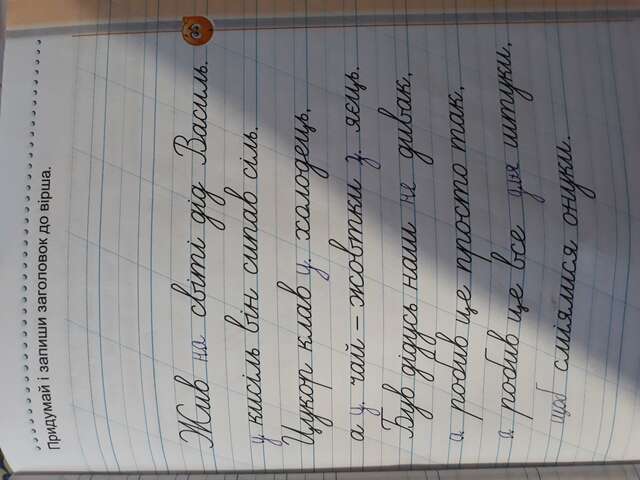 Придумай і запиши заголовок до вірша.
Жив на світі дід Василь.
У кисіль він сипав сіль.
Цукор клав у холодець,
а у чай – жовтки з яєць.
Був дідусь наш не дивак,
а робив це просто так,
а робив це все для штуки,
щоб сміялися онуки.